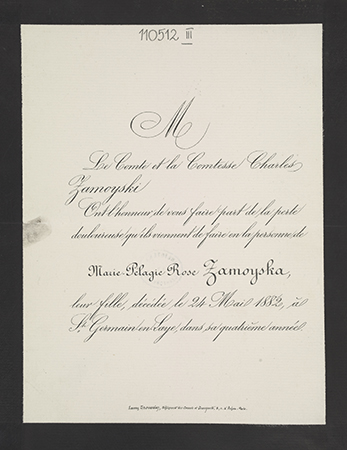 110512 III
M
Le Comte et la Comtesse Charles
Zamoyski
Ont l'honneur de vous faire part de la perte
douloureuse qu'ils viennent de faire en la personne de
Marie-Pélagie-Rose Zamoyska,
leur fille, décédée le 24 Mai 1882, à
St. Germain en Laye, dans sa quatrième année.